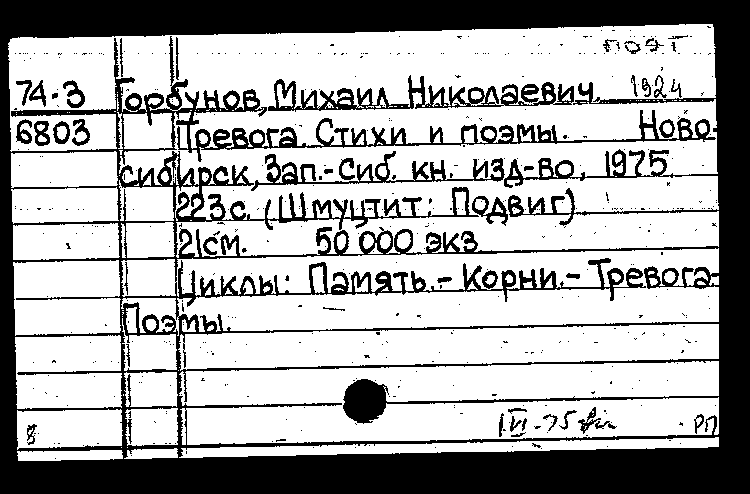 поэт
74-3 Горбунов, Михаил Николаевич. 1924
6803 Тревога. Стихи и поэмы. Ново-
сибирск, Зап.-Сиб. кн. изд-во, 1975
223с. (Шмуцтит: Подвиг)
21см. 50 000 экз
Циклы: Память.- Корни.- Тревога-
Поэмы.
8 VI-75 РП